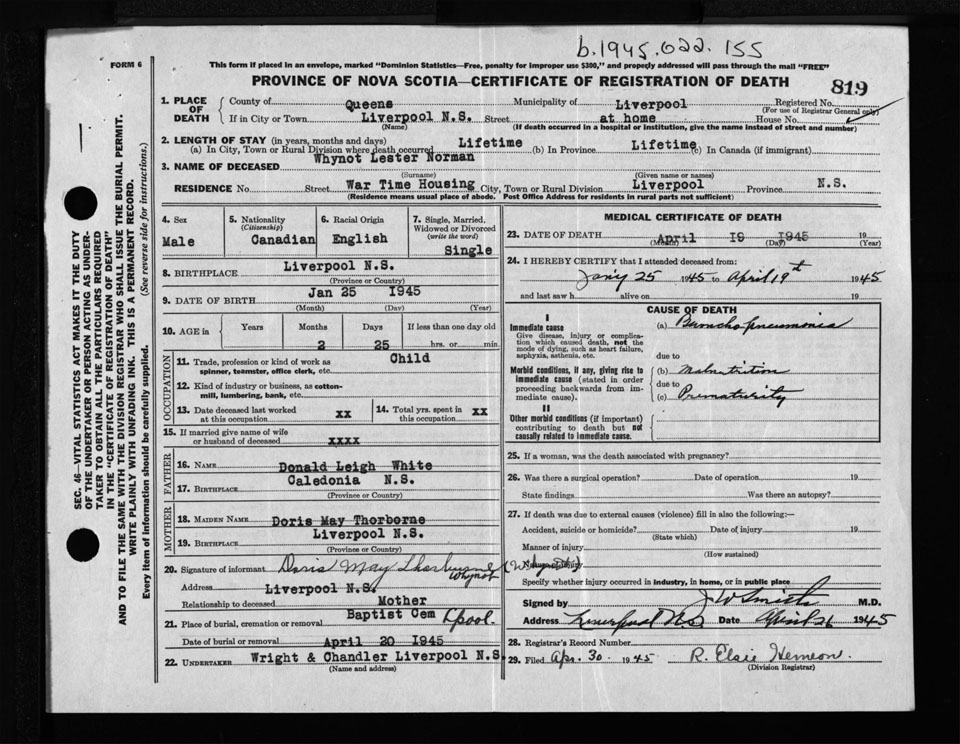 b.1945.022.155
FORM 6
This form if placed in an envelope, marked "Dominion Statistics—Free, penalty for improper use $300," and properly addressed will pass through the mail "FREE"
PROVINCE OF NOVA SCOTIA—CERTIFICATE OF REGISTRATION OF DEATH
819
1. PLACE OF DEATH
County of Queens Municipality of Liverpool Registered No.
(For use of Registrar General only)
If in City or Town Liverpool N.S. Street at home House No.
(Name) (If death occurred in a hospital or institution, give the name instead of street and number)
2. LENGTH OF STAY (in years, months and days)
(a) In City, Town or Rural Division where death occurred Lifetime (b) In Province Lifetime (c) In Canada (if immigrant)
3. NAME OF DECEASED Whynot Lester Norman
(Surname) (Given name or names)
RESIDENCE No. Street War Time Housing City, Town or Rural Division Liverpool Province N.S.
(Residence means usual place of abode. Post Office Address for residents in rural parts not sufficient)
4. Sex
Male
5. Nationality
(Citizenship)
Canadian
6. Racial Origin
English
7. Single, Married, Widowed or Divorced
(write the word)
Single
8. BIRTHPLACE Liverpool N.S.
(Province or Country)
9. DATE OF BIRTH Jan 25 1945
(Month) (Day) (Year)
10. AGE in
Years Months Days If less than one day old
2 25 hrs. or min.
OCCUPATION
11. Trade, profession or kind of work as Child
spinner, teamster, office clerk, etc.
12. Kind of industry or business, as cotton-
mill, lumbering, bank, etc.
13. Date deceased last worked
at this occupation xx
14. Total yrs. spent in
this occupation xx
15. If married give name of wife
or husband of deceased xxxx
FATHER
16. NAME Donald Leigh White
17. BIRTHPLACE Caledonia N.S.
(Province or Country)
MOTHER
18. MAIDEN NAME Doris May Thorborne
19. BIRTHPLACE Liverpool N.S.
(Province or Country)
20. Signature of informant Doris May Thorburne (Whynot)
Whynot
Address Liverpool N.S.
Relationship to deceased Mother
21. Place of burial, cremation or removal Baptist Cem L'pool.
Date of burial or removal April 20 1945
22. UNDERTAKER Wright & Chandler Liverpool N.S.
(Name and address)
MEDICAL CERTIFICATE OF DEATH
23. DATE OF DEATH April 19 1945 19
(Month) (Day) (Year)
24. I HEREBY CERTIFY that I attended deceased from:
Jany 25 1945 to April 19th 1945
and last saw h alive on 19
CAUSE OF DEATH
I
Immediate cause
Give disease, injury or complica-
tion which caused death, not the
mode of dying, such as heart failure,
asphyxia, asthenia, etc.
(a) Bronchopneumonia
due to
Morbid conditions, if any, giving rise to
immediate cause (stated in order
proceeding backwards from im-
mediate cause).
(b) Malnutrition
due to
(c) Prematurity
II
Other morbid conditions (if important)
contributing to death but not
causally related to immediate cause.
25. If a woman, was the death associated with pregnancy?
26. Was there a surgical operation? Date of operation 19
State findings Was there an autopsy?
27. If death was due to external causes (violence) fill in also the following:—
Accident, suicide or homicide? Date of injury 19
(State which)
Manner of injury
(How sustained)
Nature of injury
Specify whether injury occurred in industry, in home, or in public place
Signed by J W Smith M.D.
Address Liverpool N.S. Date April 26 1945
28. Registrar's Record Number
29. Filed Apr. 30. 1945 R. Elsie Hemeon.
(Division Registrar)
SEC. 46—VITAL STATISTICS ACT MAKES IT THE DUTY
OF THE UNDERTAKER OR PERSON ACTING AS UNDER-
TAKER TO OBTAIN ALL THE PARTICULARS REQUIRED
IN THE "CERTIFICATE OF REGISTRATION OF DEATH"
AND TO FILE THE SAME WITH THE DIVISION REGISTRAR WHO SHALL ISSUE THE BURIAL PERMIT.
WRITE PLAINLY WITH UNFADING INK. THIS IS A PERMANENT RECORD.
Every item of information should be carefully supplied. (See reverse side for instructions.)